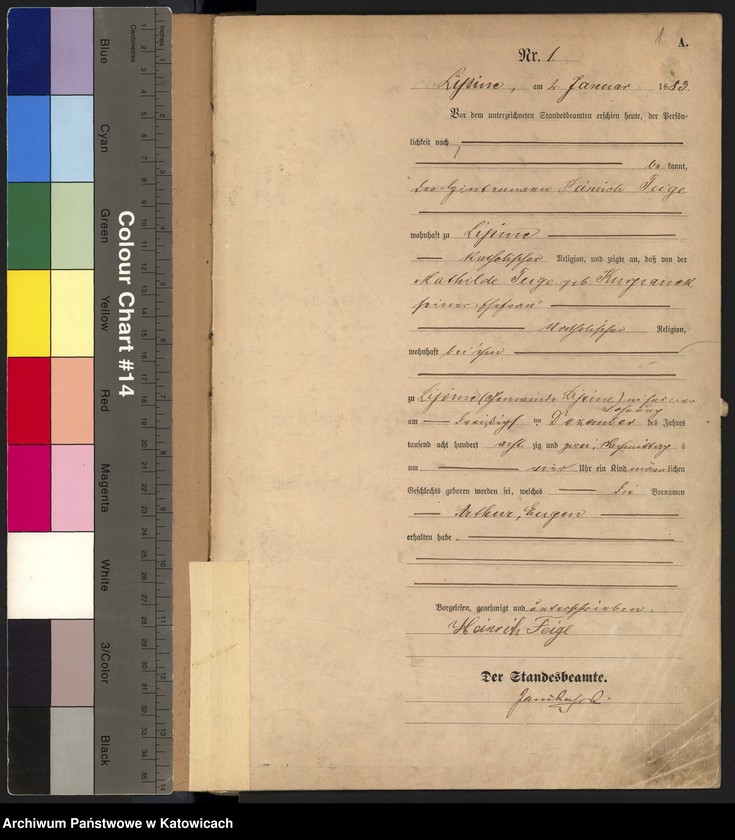 Inches
Centimetres
Colour Chart #14
Blue
Cyan
Green
Yellow
Red
Magenta
White
3/Color
Black
1
A.
Nr. 1
Lipine, am 2 Januar 1883.
Vor dem unterzeichneten Standesbeamten erschien heute, der Persön-
lichkeit nach
be kannt,
der Heinrich Feige
wohnhaft zu Lipine
katholischer Religion, und zeigte an, daß von der
Mathilde Feige geb.
seiner Ehefrau
katholischer Religion,
wohnhaft bei ihm
zu Lipine (Gemeinde Lipine) in seiner
Wohnung
am dreißigsten Dezember des Jahres
tausend acht hundert acht zig und zwei, Nachmittag s
um vier Uhr ein Kind männ lichen
Geschlechts geboren worden sei, welches die Vornamen
Arthur, Eugen
erhalten habe
Vorgelesen, genehmigt und unterschrieben.
Heinrich Feige
Der Standesbeamte.
Archiwum Państwowe w Katowicach